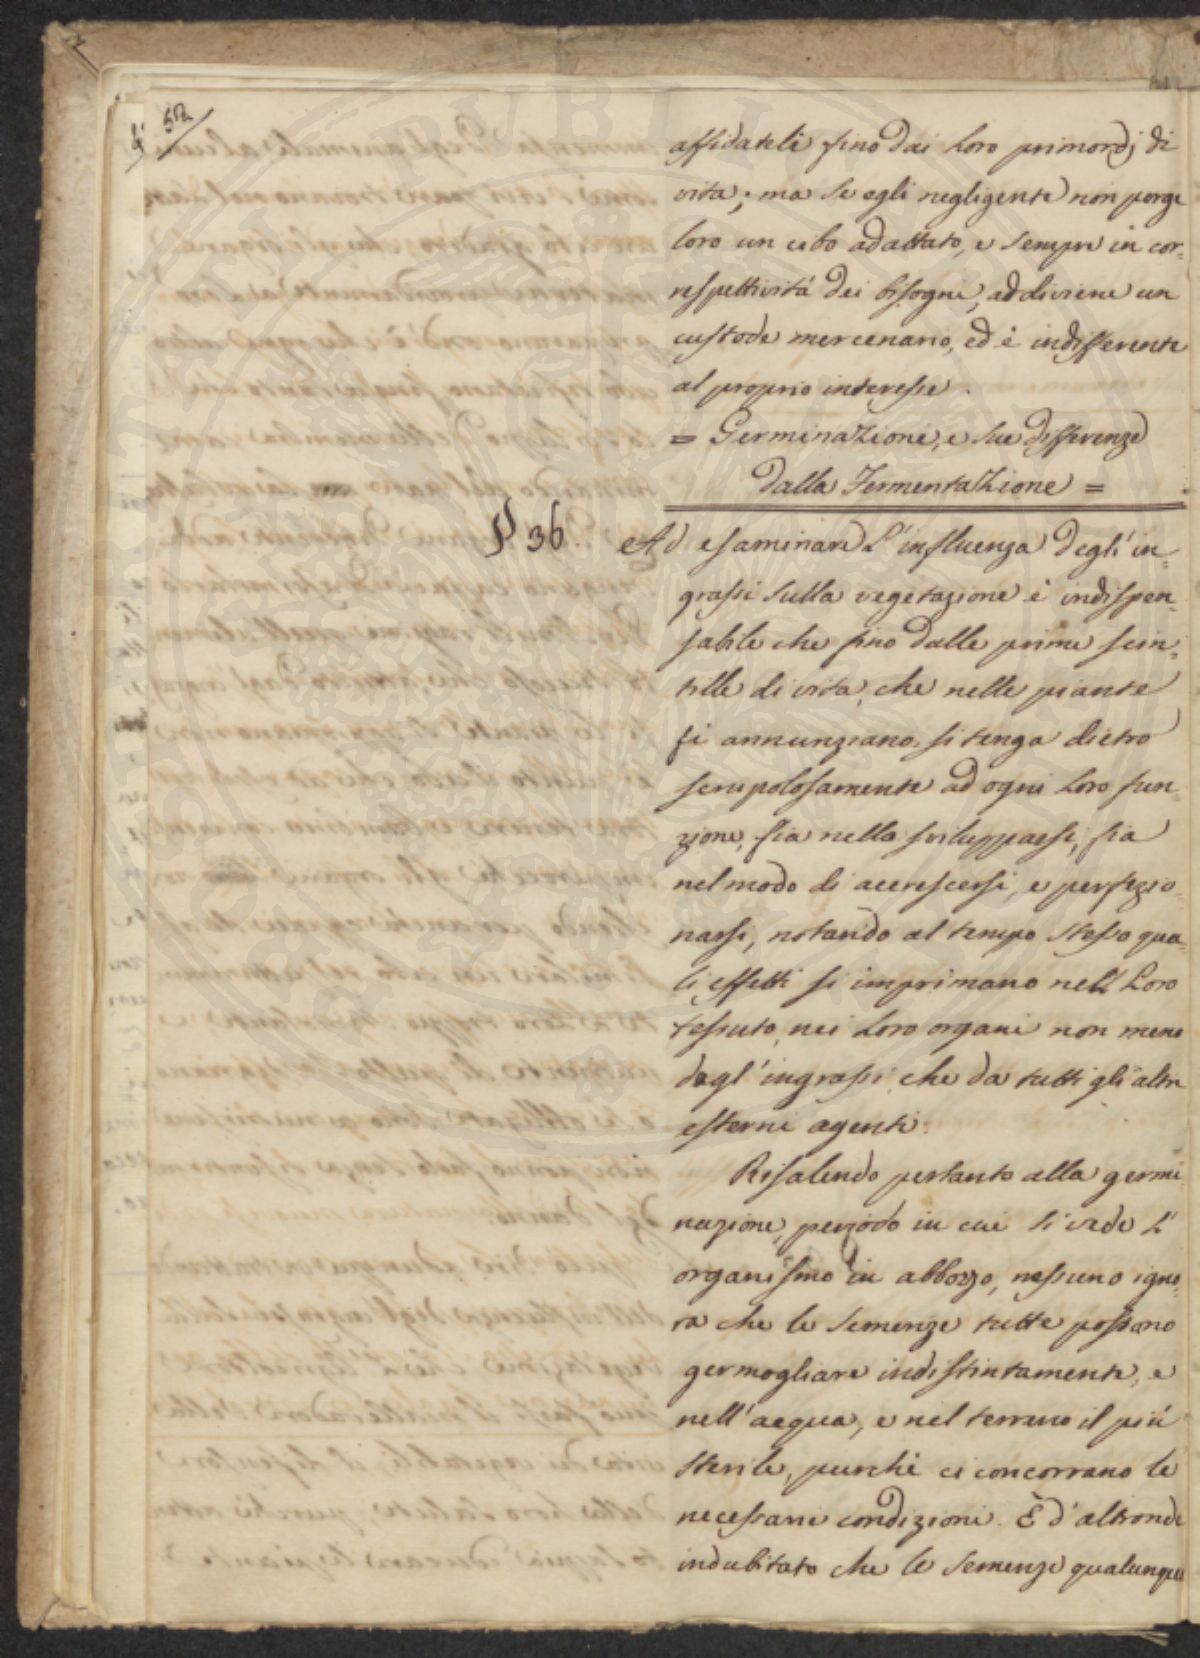 52
affidateli fino dai loro primordj di
vita; ma se egli negligente non porge
loro un cibo adattato, e sempre in cor-
respettività dei bisogni, addiviene un
custode mercenario, ed è indifferente
al proprio interesse.
= Germinazione, e sue differenze
dalla Fermentazione =
§ 36. Ad esaminare l'influenza degl'in-
grassi sulla vegetazione è indispen-
sabile che fino dalle prime scin-
tille di vita, che nelle piante
si annunziano, si tenga dietro
scrupolosamente ad ogni loro fun-
zione, sia nello svilupparsi, sia
nel modo di accrescersi, e perfezio-
narsi, notando al tempo stesso qua-
li effetti si imprimano nell loro
tessuto, nei loro organi non meno
dagl'ingrassi, che da tutti gli altri
esterni agenti.
Risalendo pertanto alla germi-
nazione, periodo in cui si vede l'
organismo in abbozzo, nessuno igno-
ra che le semenze tutte possono
germogliare indistintamente, e
nell'acqua, e nel terreno il più
sterile, purchè ci concorrano le
necessarie condizioni. È d'altronde
indubitato che le semenze qualunque